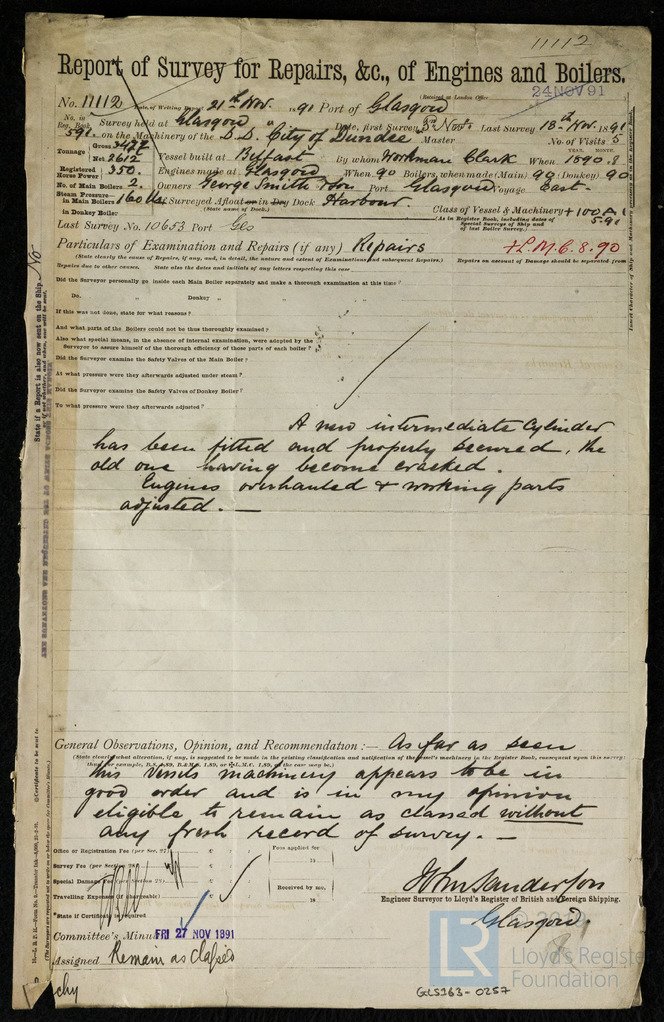 11112
Report of Survey for Repairs, &c., of Engines and Boilers.
(Received at London Office
24 NOV 91
No. 11112 Date of Writing Report 21st Nov. 1891 Port of Glasgow
No. in Reg. Book Survey held at Glasgow Date, first Survey 5th Nov. Last Survey 18th Nov. 1891
591 on the Machinery of the S.S. City of Dundee Master No. of Visits 5
Tonnage Gross 3427 Net 2612 Vessel built at Belfast By whom Workman Clark When 1890.8
YEAR. MONTH.
Registered Horse Power 350. Engines made at Glasgow When 90 Boilers, when made (Main) 90 (Donkey) 90
No. of Main Boilers 2. Owners George Smith & Son Port Glasgow Voyage East.
Steam Pressure— in Main Boilers 160 lbs If Surveyed Afloat or in Dry Dock Harbour
in Donkey Boiler
(State name of Dock.)
Class of Vessel & Machinery +100 A1
5.91
(As in Register Book, including dates of Special Surveys of Ship and of last Boiler Survey.)
Last Survey No. 10653 Port Glo
+L.M.C. 8.90
Particulars of Examination and Repairs (if any) Repairs
(State clearly the cause of Repairs, if any, and, in detail, the nature and extent of Examinations and subsequent Repairs.) Repairs on account of Damage should be separated from
Repairs due to other causes. State also the dates and initials of any letters respecting this case
Did the Surveyor personally go inside each Main Boiler separately and make a thorough examination at this time?
Do. " Donkey " " "
If this was not done, state for what reasons?
And what parts of the Boilers could not be thus thoroughly examined?
Also what special means, in the absence of internal examination, were adopted by the
Surveyor to assure himself of the thorough efficiency of those parts of each boiler?
Did the Surveyor examine the Safety Valves of the Main Boiler?
At what pressure were they afterwards adjusted under steam?
Did the Surveyor examine the Safety Valves of Donkey Boiler?
To what pressure were they afterwards adjusted?
A new intermediate Cylinder
has been fitted and properly secured, the
old one having become cracked.
Engines overhauled & working parts
adjusted. —
General Observations, Opinion, and Recommendation:— As far as seen
(State clearly what alteration, if any, is suggested to be made in the existing classification and notification of the vessel's machinery in the Register Book, consequent upon this survey;
this Vessels machinery appears to be in
good order and is in my opinion
eligible to remain as classed without
any fresh record of survey. —
Office or Registration Fee (per Sec. 27) £
Survey Fee (per Section 28) £
Special Damage Fee (per Section 28) £
Travelling Expenses (if chargeable) £
*State if Certificate is required
Fees applied for
18
Received by me,
18
John Sanderson
Engineer Surveyor to Lloyd's Register of British and Foreign Shipping.
Glasgow.
Committee's Minute FRI 27 NOV 1891
Assigned Remain as classed
State if a Report is also now sent on the Ship. No
or if not, whether, and when, one will be sent.
Insert Character of Ship and Machinery precisely as in the Register Book.
LR
Lloyd's Register
Foundation
GLS163-0257